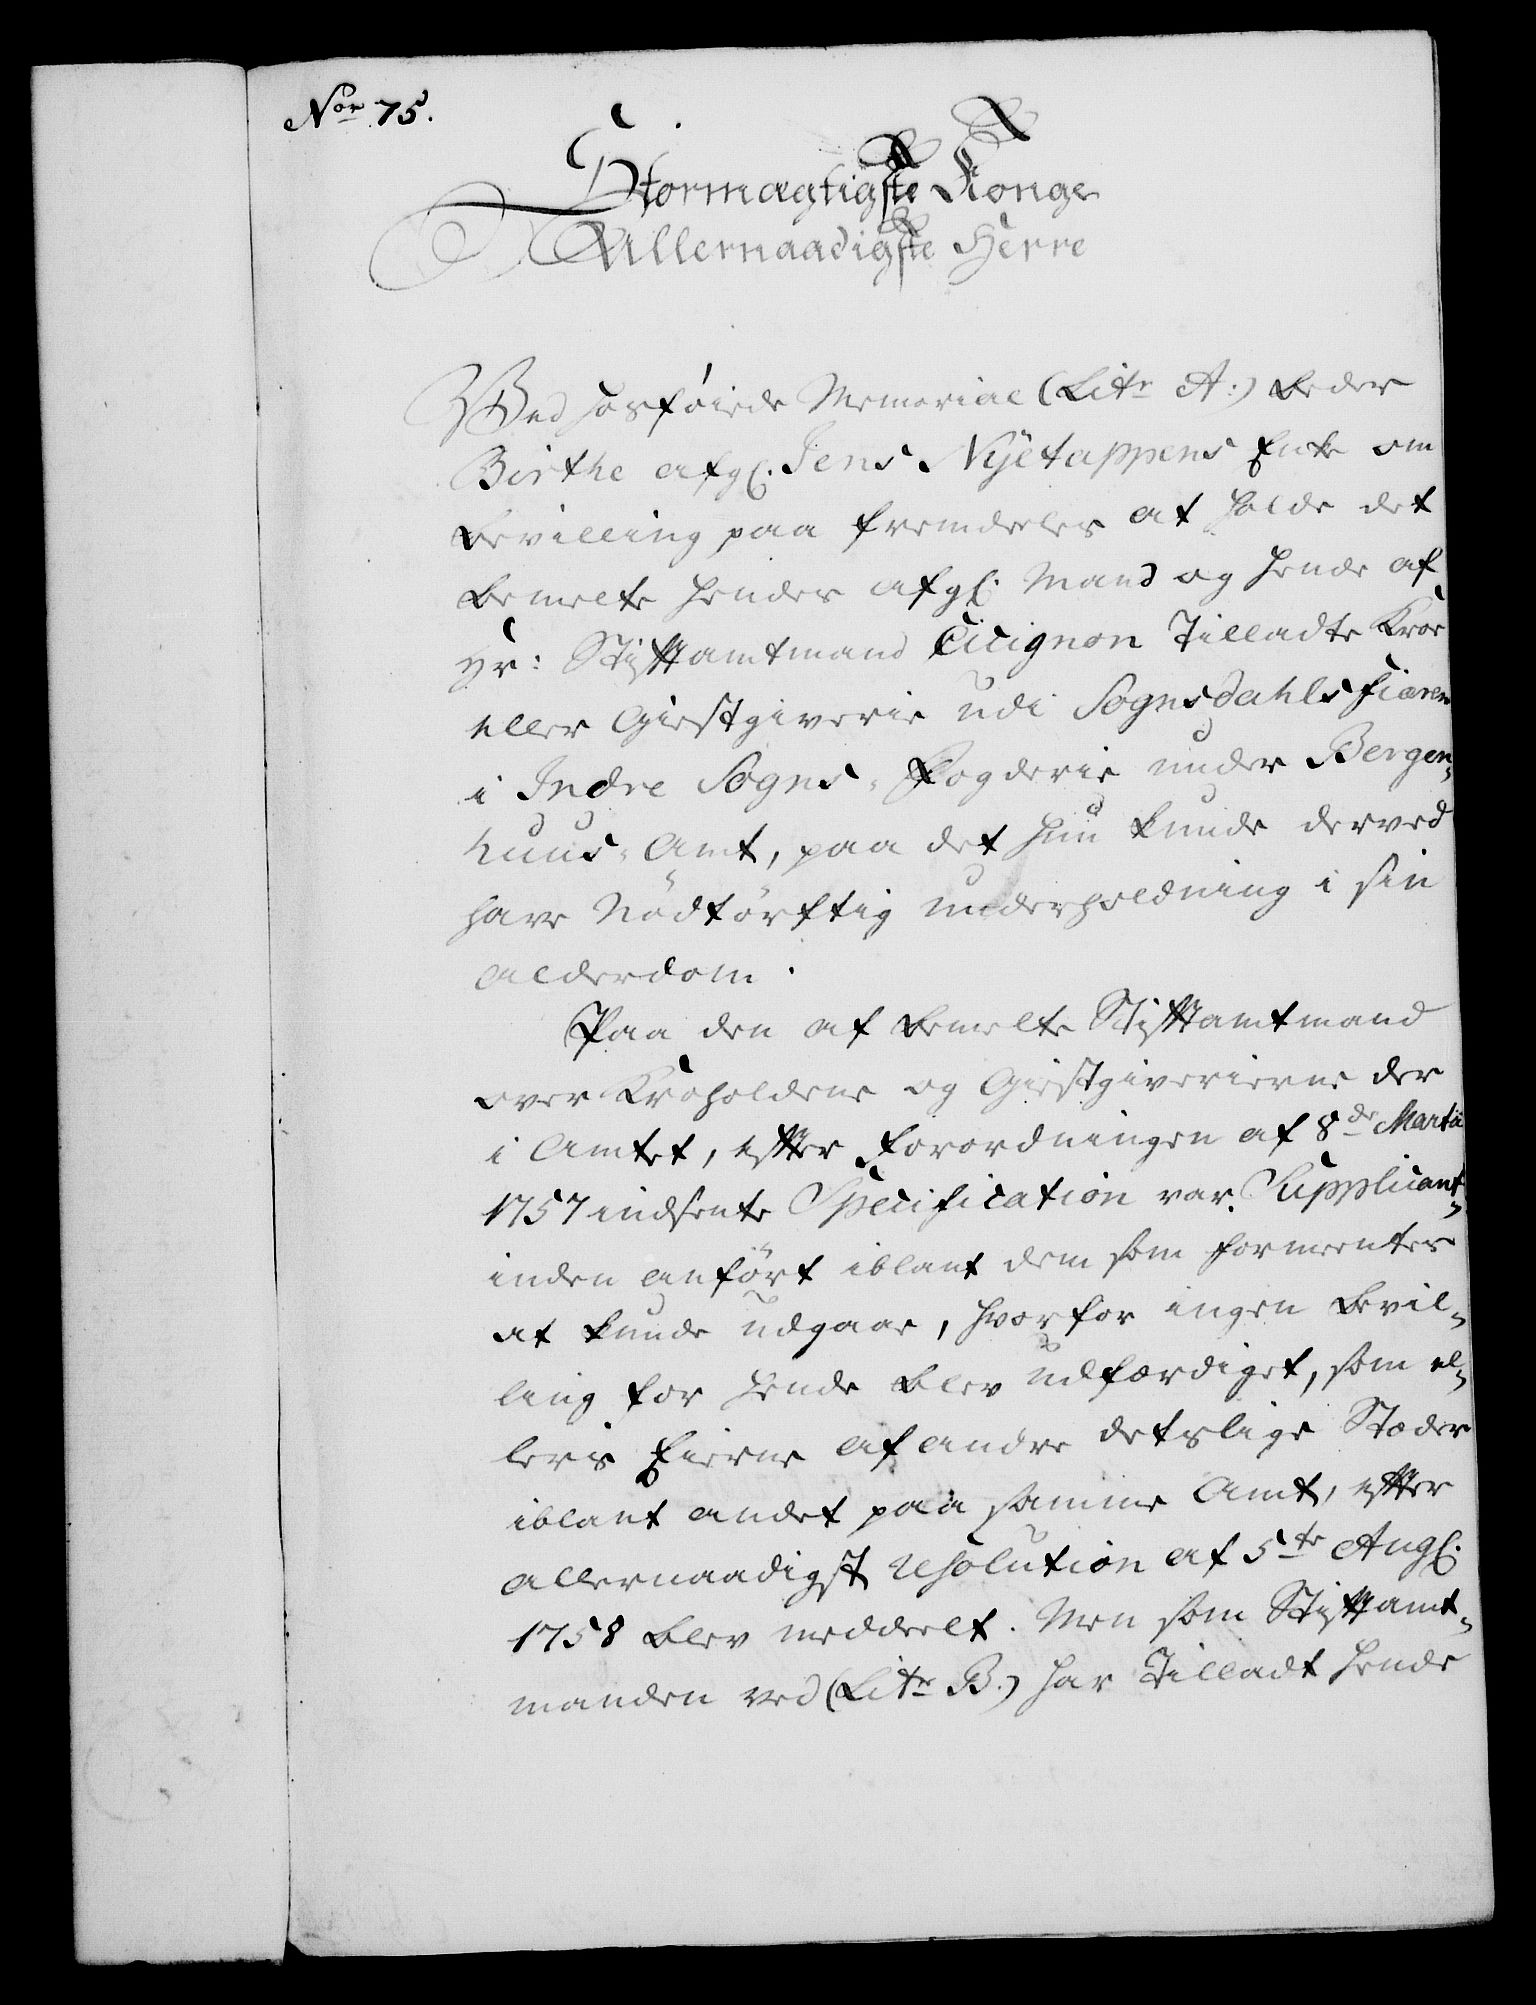 Nor 75.
Stormægtigste Konge
Allernaadigste Herre
Ved hosføiede Memorial (Litr A:) beder
Birthe afgl. Jens Nyetappens Enke om
Bevilling paa fremdeeles at holde det
bemelte hendes afgl. Mand og hende af
Hr: Stiftamtmand Cicignon Tilladte Kroe
eller Giestgiverie udi Sognsdahls fiæren
i Indre Sogns-Fogderie under Bergen-
huus-Amt, paa det hun kunde derved
have Nødtørftig underholdning i sin
alderdom.
Paa den af bemelte Stiftamtmand
over Kroholdene og Giestgiverierne der
i Amtet, efter Forordningen af 8de Martii
1757 indsente Specification var Supplicant-
inden anført iblant dem som formeentes
at kunde udgaae, hvorfor ingen Bevil-
ling for hende blev udfærdiget, som el-
lers Eierne af andre detslige Stæder
iblant andet paa samme Amt, efter
allernaadigst Resolution af 5te Augl.
1758 blev meddeelt. Men som Stiftamt-
manden ved (Litr B.) har Tilladt hende